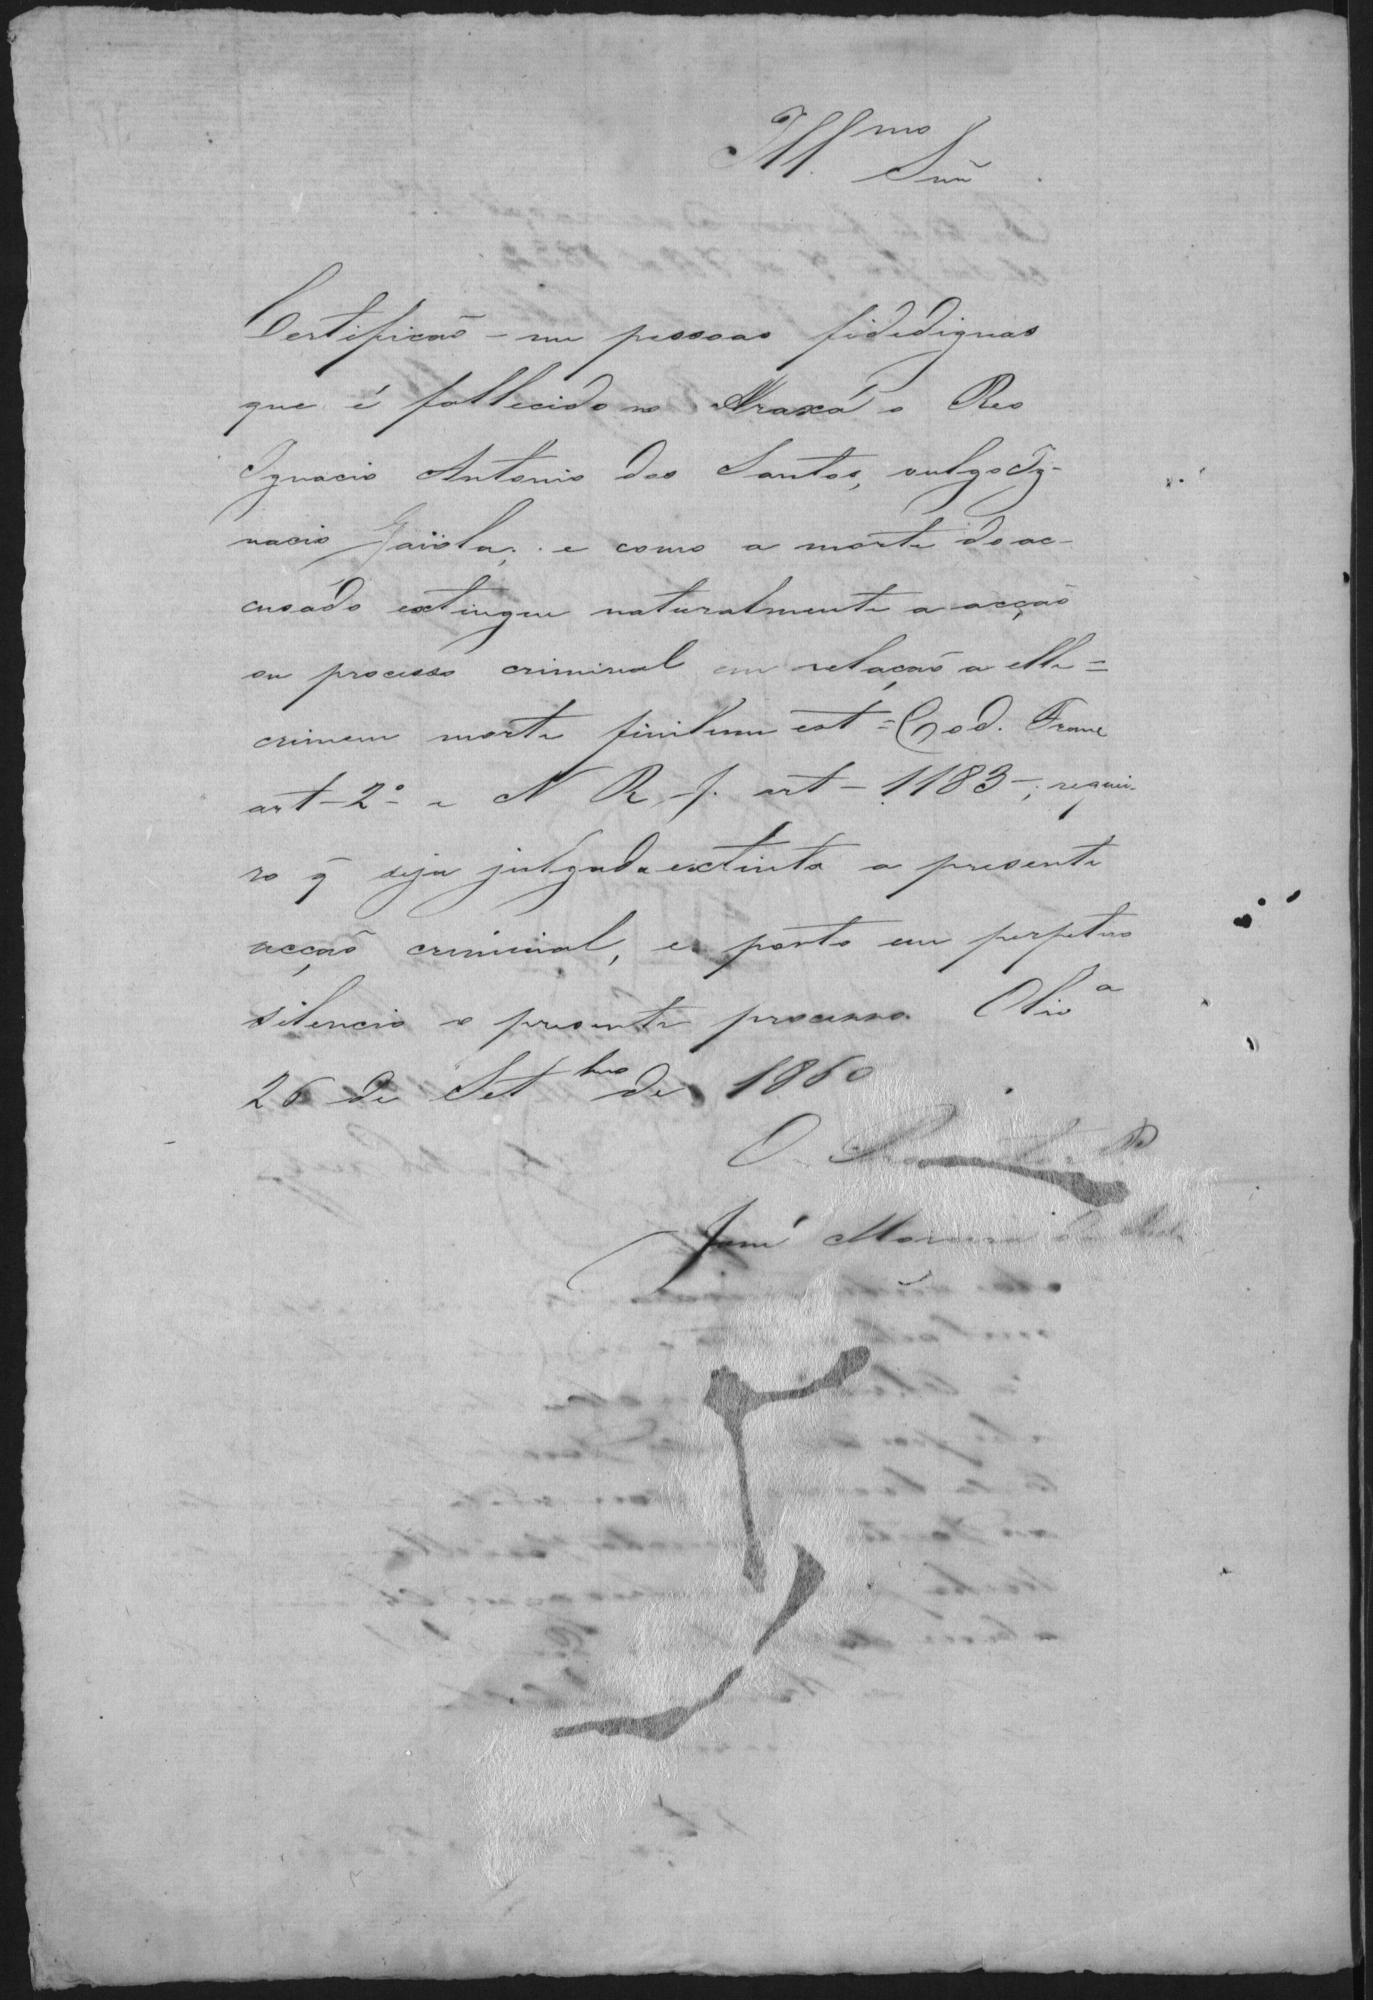 Ill.mo
Snr.
Certificão-me pessoas fidedignas
que é fallecido no Araxá o Reo
Ignacio Antonio dos Santos, vulgo Ig-
nacio Gaiola; e como a morte do ac-
cusádo extingue naturalmente a acção
ou processo criminal em relação a elle =
crimem morte finitum est = Cod. Franc
art-2º- e N R J. art-1183-; requei-
ro q̃ seja julgada extinta a presente
acção criminal, e posto em perpetuo
silencio o presente processo. Olivª
26 de Setbro de 1860
O Promotor P
José Moreira da